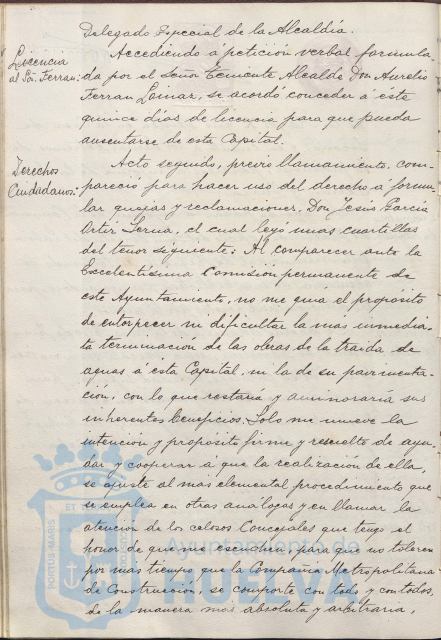 Delegado Especial de la Alcaldía.
Licencia
al Sr. Ferran:
Accediendo á petición verbal formula-
da por el Señor Teniente Alcalde Don Aurelio
Ferran Loinaz, se acordó conceder á éste
quince días de licencia para que pueda
ausentarse de esta Capital.
Derechos
Ciudadanos:
Acto seguido, previo llamamiento, com-
pareció para hacer uso del derecho á formu-
lar quejas y reclamaciones, Don Jesús García
Ortiz Serna, el cual leyó unas cuartillas
del tenor siguiente: Al comparecer ante la
Excelentísima Comisión permanente de
este Ayuntamiento, no me guía el propósito
de entorpecer ni dificultar la más inmedia-
ta terminación de las obras de la traída de
aguas á esta Capital, ni la de su pavimenta-
ción, con lo que restaría y aminoraría sus
inherentes beneficios. Solo me mueve la
intención y propósito firme y resuelto de ayu-
dar y cooperar á que la realización de ella,
se ajuste al más elemental procedimiento que
se emplea en otras análogas y en llamar la
atención de los celosos Concejales que tengo el
honor de que me escuchen, para que no toleren
por más tiempo que la Compañía Metropolitana
de Construcción, se comporte con todo y con todos,
de la manera más absoluta y arbitraria,
PORTUS MARIS
ET
Ayuntamiento de
HUELVA